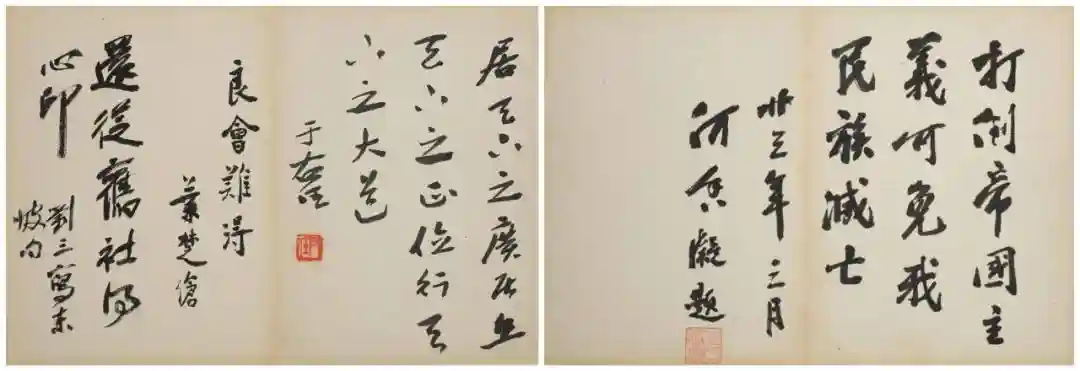 打倒帝國主
義可免我
民族滅亡
廿三年二月
何香凝題
居天下之廣居立
天下之正位行天
下之大道
于右任
良會難得
葉楚傖
還從舊社得
心印
劉三寫東
坡句